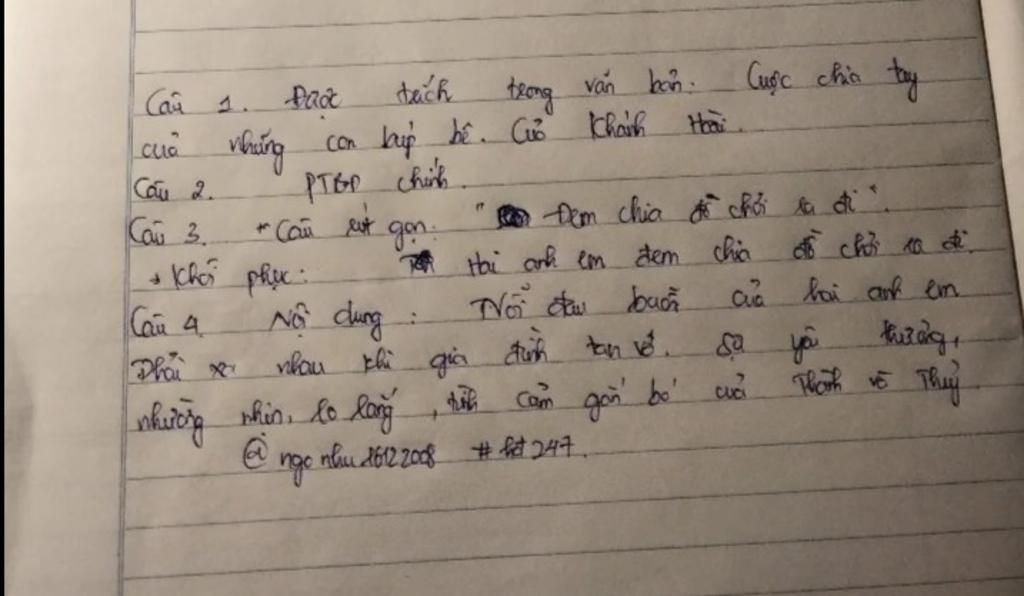 Câu 1. Được trích trong văn bản: Cuộc chia tay
của những con búp bê. Của Khánh Hoài.
Câu 2. PTBĐ chính.
Câu 3. + Câu rút gọn: " Đem chia đồ chơi ra đi".
+ Khôi phục: Hai anh em đem chia đồ chơi ra đi.
Câu 4. Nội dung: Nỗi đau buồn của hai anh em
phải xa nhau khi gia đình tan vỡ. Sự yêu thương,
nhường nhịn, lo lắng, tình cảm gắn bó của Thành và Thuỷ.
@ngocnhu16122008 #hd247.